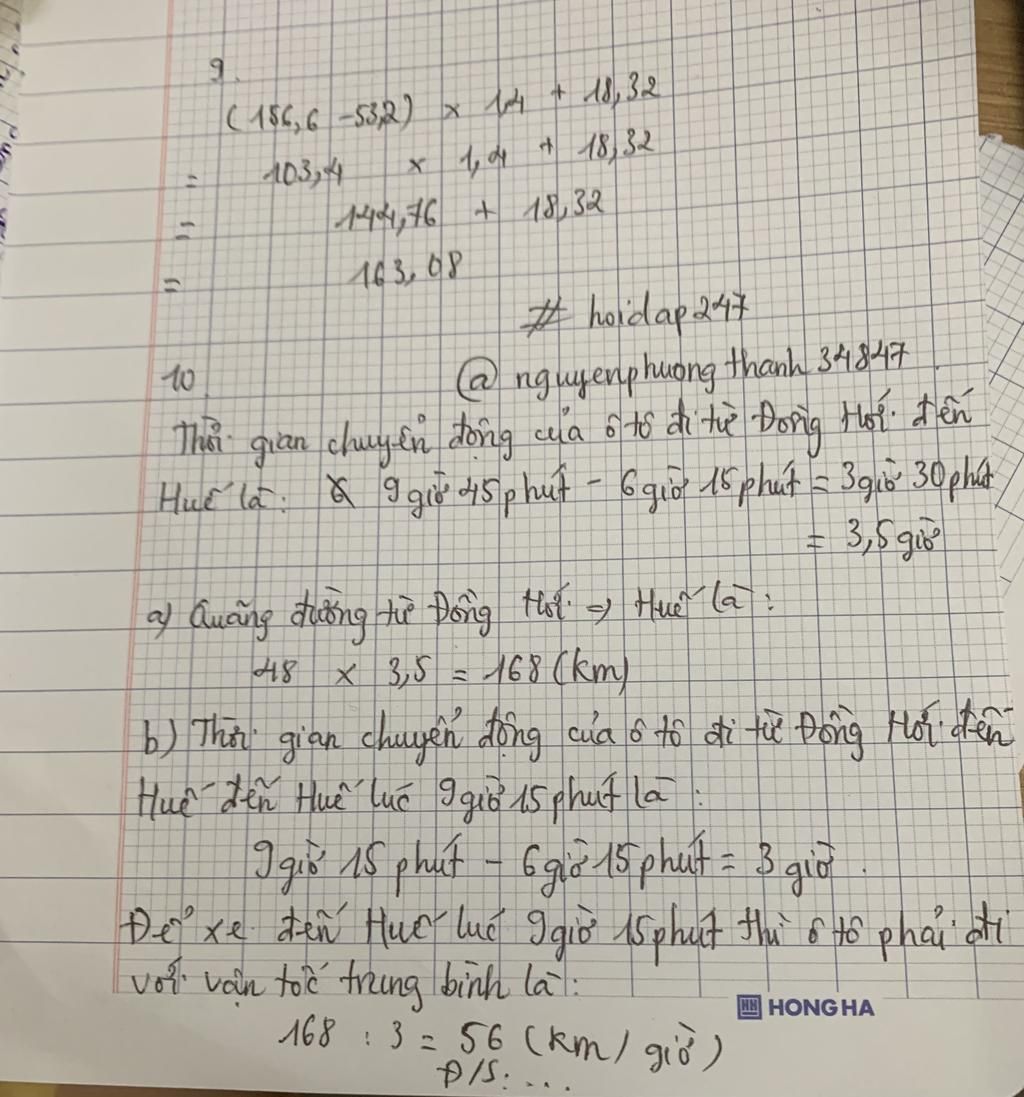 9.
(156,6 - 53,2) x 1,4 + 18,32
= 103,4 x 1,4 + 18,32
= 144,76 + 18,32
= 163,08
# hoidap247
10 @ nguyenphuongthanh34847
Thời gian chuyển động của ô tô đi từ Đồng Hới đến
Huế là: 9 giờ 45 phút - 6 giờ 15 phút = 3 giờ 30 phút
= 3,5 giờ
a) Quãng đường từ Đồng Hới => Huế là:
48 x 3,5 = 168 (km)
b) Thời gian chuyển động của ô tô đi từ Đồng Hới đến
Huế đến Huế lúc 9 giờ 15 phút là:
9 giờ 15 phút - 6 giờ 15 phút = 3 giờ.
Để xe đến Huế lúc 9 giờ 15 phút thì ô tô phải đi
với vận tốc trung bình là:
HH HONG HA
168 : 3 = 56 (km/giờ)
Đ/S: ...